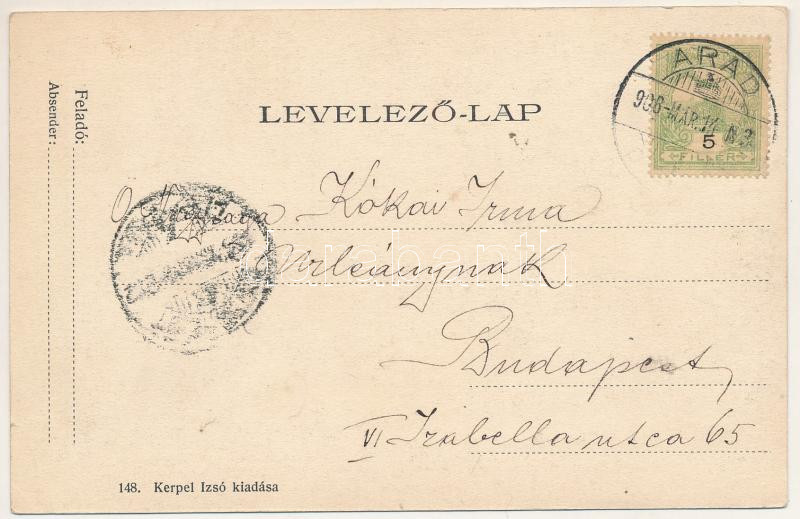 LEVELEZŐ-LAP
Feladó:
Absender:
ARAD
906-MÁR.17 N3
5
FILLÉR
Ő Nagysága Kókai Irma
Urleánynak
Budapest
VI Izabella utca 65
148. Kerpel Izsó kiadása